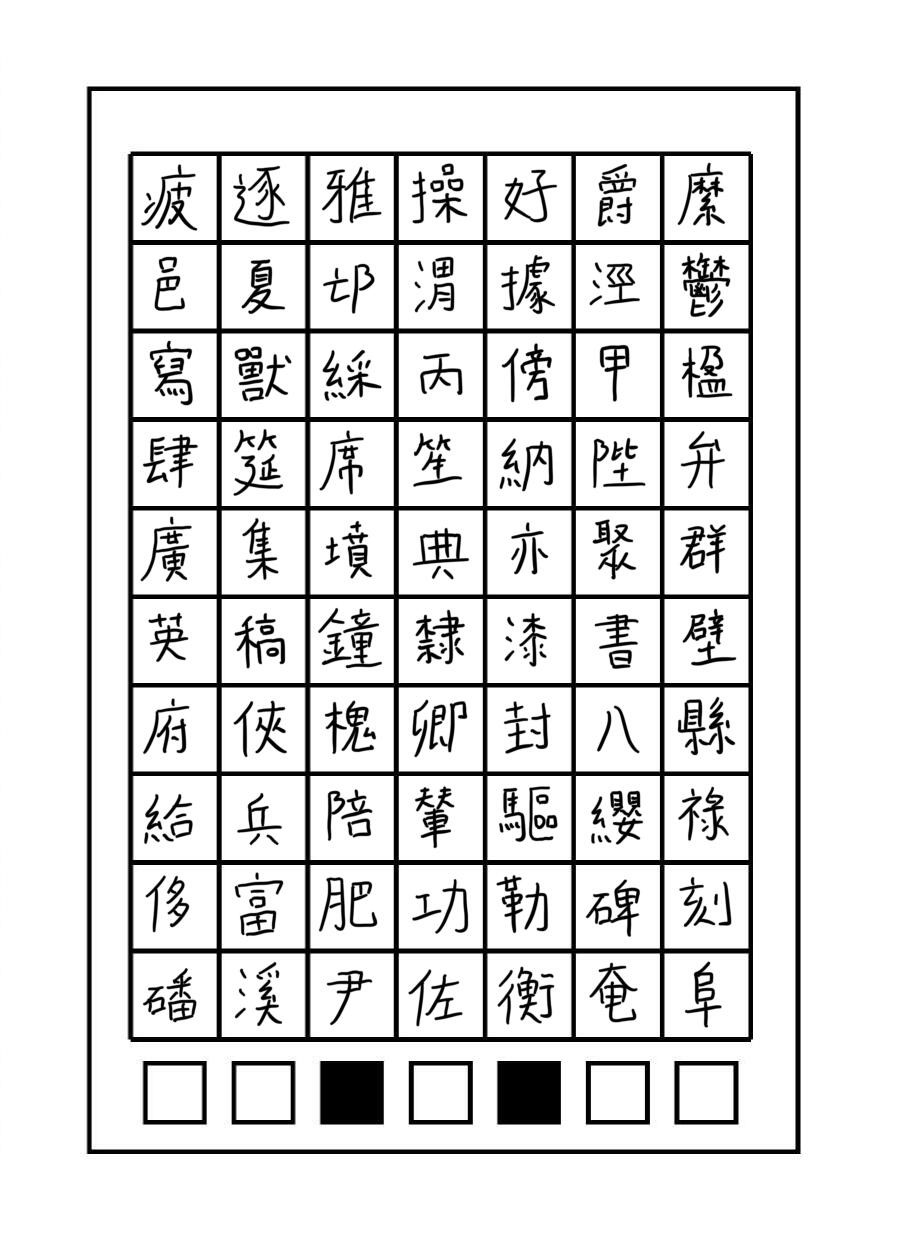 疲逐雅操好爵縻
邑夏邙渭據涇鬱
寫獸綵丙傍甲楹
肆筵席笙納陛弁
廣集墳典亦聚群
英稿鐘隸漆書壁
府俠槐卿封八縣
給兵陪輦驅纓祿
侈富肥功勒碑刻
磻溪尹佐衡奄阜